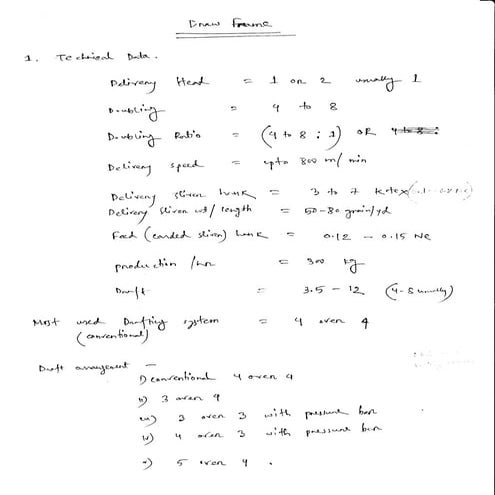 Draw Frame
1. Technical Data.
Delivery Head = 1 or 2 usually 1
Doubling = 4 to 8
Doubling Ratio = (4 to 8 : 1) OR
Delivery speed = upto 800 m/min
Delivery sliver hank = 3 to 7 Ketex
Delivery sliver wt/length = 50-80 grain/yd
Feed (carded sliver) hank = 0.12 - 0.15 Ne
production /hr = 300 kg
Draft = 3.5 - 12 (4-8 usually)
Most used Drafting system = 4 over 4
(conventional)
Draft arrangement -
i) conventional 4 over 4
ii) 3 over 4
iii) 3 over 3 with pressure bar
iv) 4 over 3 with pressure bar
v) 5 over 4.